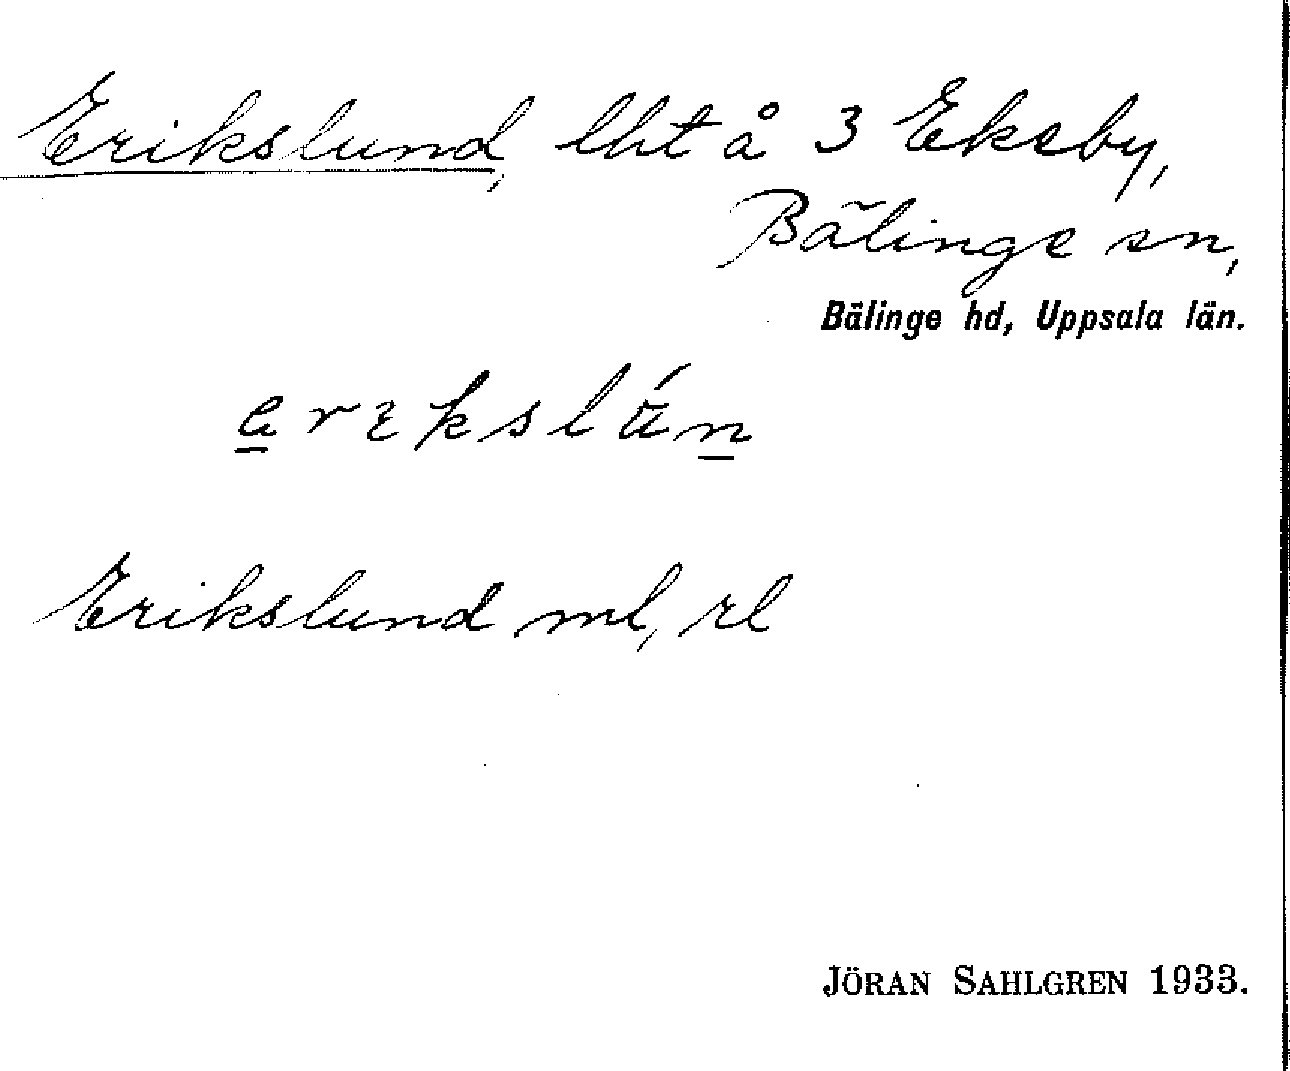 Erikslund, lht å 3 Eksby,
Bälinge sn,
Bälinge hd, Uppsala län.
Erikslund ml, rl
JÖRAN SAHLGREN 1933.